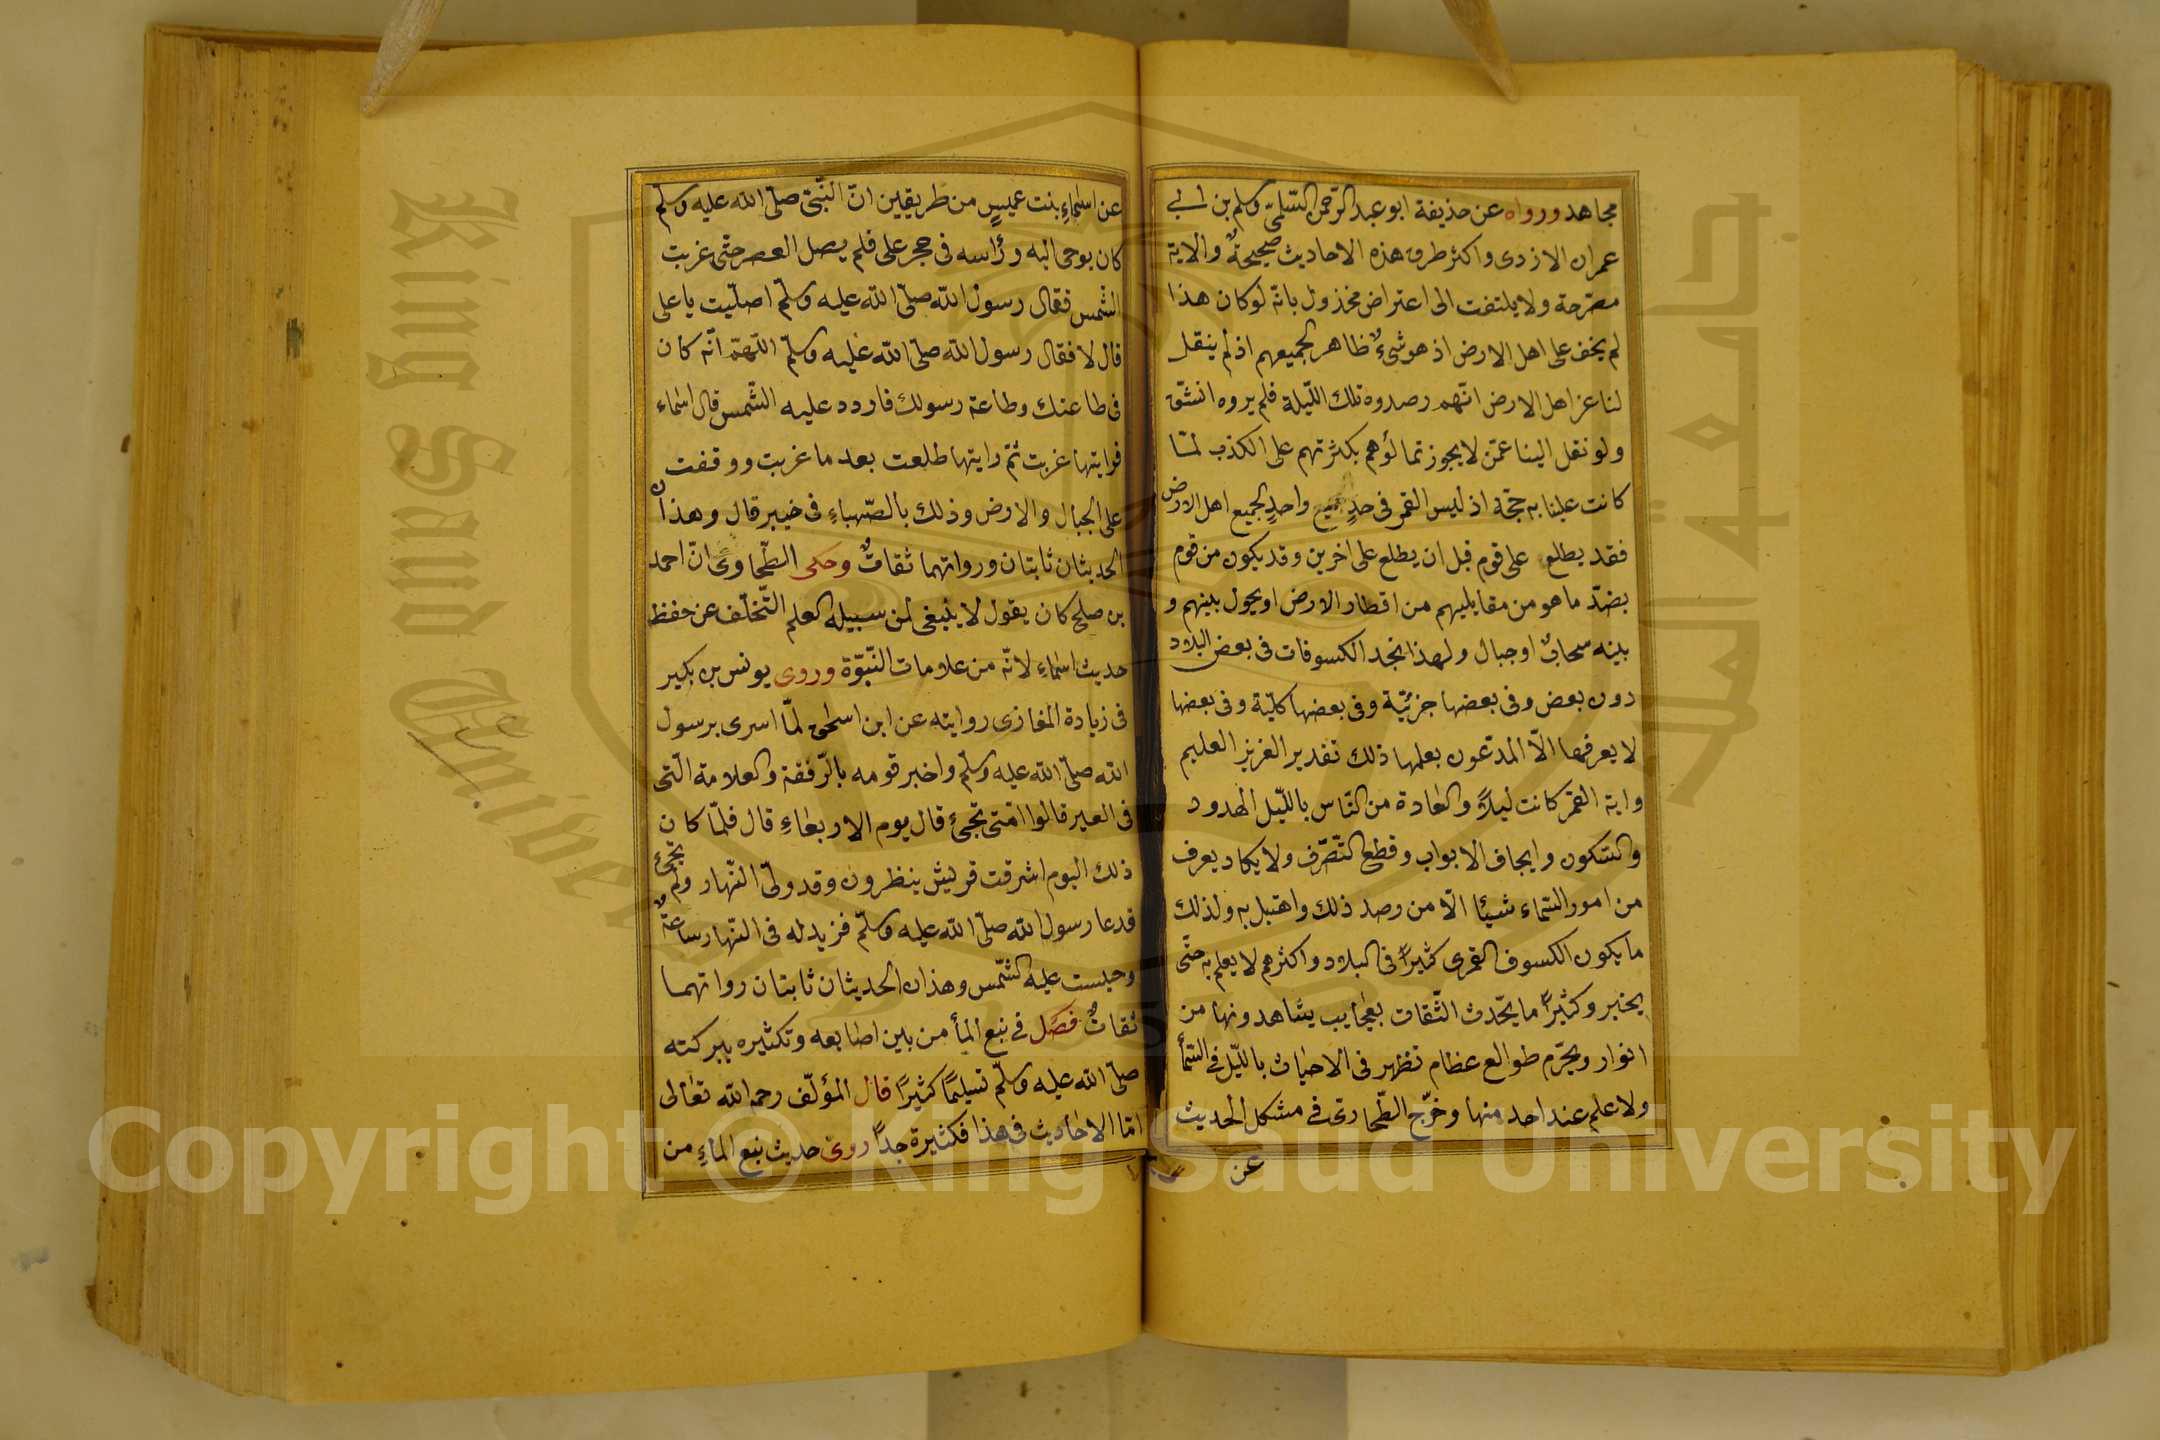 مجاهد ورواه عن حذيفة ابو عبد الرّحمن السّلمىّ ومسلم بن ابى
عمران الازدى واكثر طرق هذه الاحاديث صحيحةٌ والاية
مصرّحة ولا يلتفت الى اعتراض مخذول بانّه لو كان هذا
لم يخف على اهل الارض اذ هو شىءٌ ظاهر لجميعهم اذ لم ينقل
لنا عن اهل الارض انّهم رصدوه تلك اللّيلة فلم يروه انشقّ
ولو نقل الينا عمّن لا يجوز تمالؤهم بكثرتهم على الكذب لمّا
كانت علينا به حجّة اذ ليس القمر فى حدٍ واحدٍ لجميع اهل الارض
فقد يطلع على قوم قبل ان يطلع على اخرين وقد يكون من قوم
بضدّ ما هو من مقابليهم من اقطار الارض او يحول بينهم و
بينه سحابٌ او جبال ولهذا نجد الكسوفات فى بعض البلاد
دون بعض وفى بعضها جزئيّة وفى بعضها كليّة وفى بعضها
لا يعرفها الاّ المدّعون بعلمها ذلك تقدير العزيز العليم
واية القمر كانت ليلاً والعادة من النّاس باللّيل الهدود
والسّكون وايجاف الابواب وقطع التّصرّف ولا يكاد يعرف
من امور السّماء شيئا الّا من رصد ذلك واهتبل به ولذلك
ما يكون الكسوف القمرى كثيراً فى البلاد واكثرهم لا يعلم به حتّى
يخبر وكثيراً ما يحّدث الثّقات بعجايب يشاهدونها من
انوار ونجّوم طوالع عظام تظهر فى الاحيان باللّيل فى السّمأ
ولا علم عند احد منها وخرّج الطّحاوىّ فى مشكل الحديث
عن
عن اسماءِ بنت عميسٍ من طريقين انّ النّبىّ صلّى الله عليه وسلّم
كان يوحى اليه ورأسه فى حجر على فلم يصل العصر حتّى غربت
الشّمس فقال رسول الله صلّى الله عليه وسلّم اصلّيت يا على
قال لا فقال رسول الله صلّى الله عليه وسلّم اللّهمّ انّه كان
فى طاعتك وطاعة رسولك فاردد عليه الشّمس قال اسماء
فرايتها غربت ثمّ رايتها طلعت بعد ما غربت ووقفت
على الجبال والارض وذلك بالصّهباءِ فى خيبر قال وهذان
الحديثان ثابتان ورواتهما ثقاتٌ وحكى الطّحاوىّ انّ احمد
بن صلح كان يقول لا ينبغى لمن سبيله العلم التّخلّف عن حفظ
حديث اسماءِ لانّه من علامات النّبوّة وروى يونس بن بكير
فى زيادة المغازى روايته عن ابن اسحٰق لمّا اسرى برسول
الله صلّى الله عليه وسلّم واخبر قومه بالرّفقة والعلامة الّتى
فى العير قالوا متى تجئ قال يوم الاربعاءِ قال فلمّا كان
ذلك اليوم اشرفت قريش ينظرون وقد ولىّ النّهار ولم تجئ
فدعا رسول الله صلّى الله عليه وسلّم فزيد له فى النّهار ساعةٌ
وحبست عليه الشّمس وهذان الحديثان ثابتان رواتهما
ثقاتٌ فصل فى نبع المأ من بين اصابعه وتكثيره ببركته
صلّى الله عليه وسلّم تسليمًا كثيرًا قال المؤلّف رحمه الله تعالى
امّا الاحاديث فى هذا فكثيرة جداً روى حديث نبع الماءِ من
Copyright © King Saud University
King Saud University
جامعة الملك